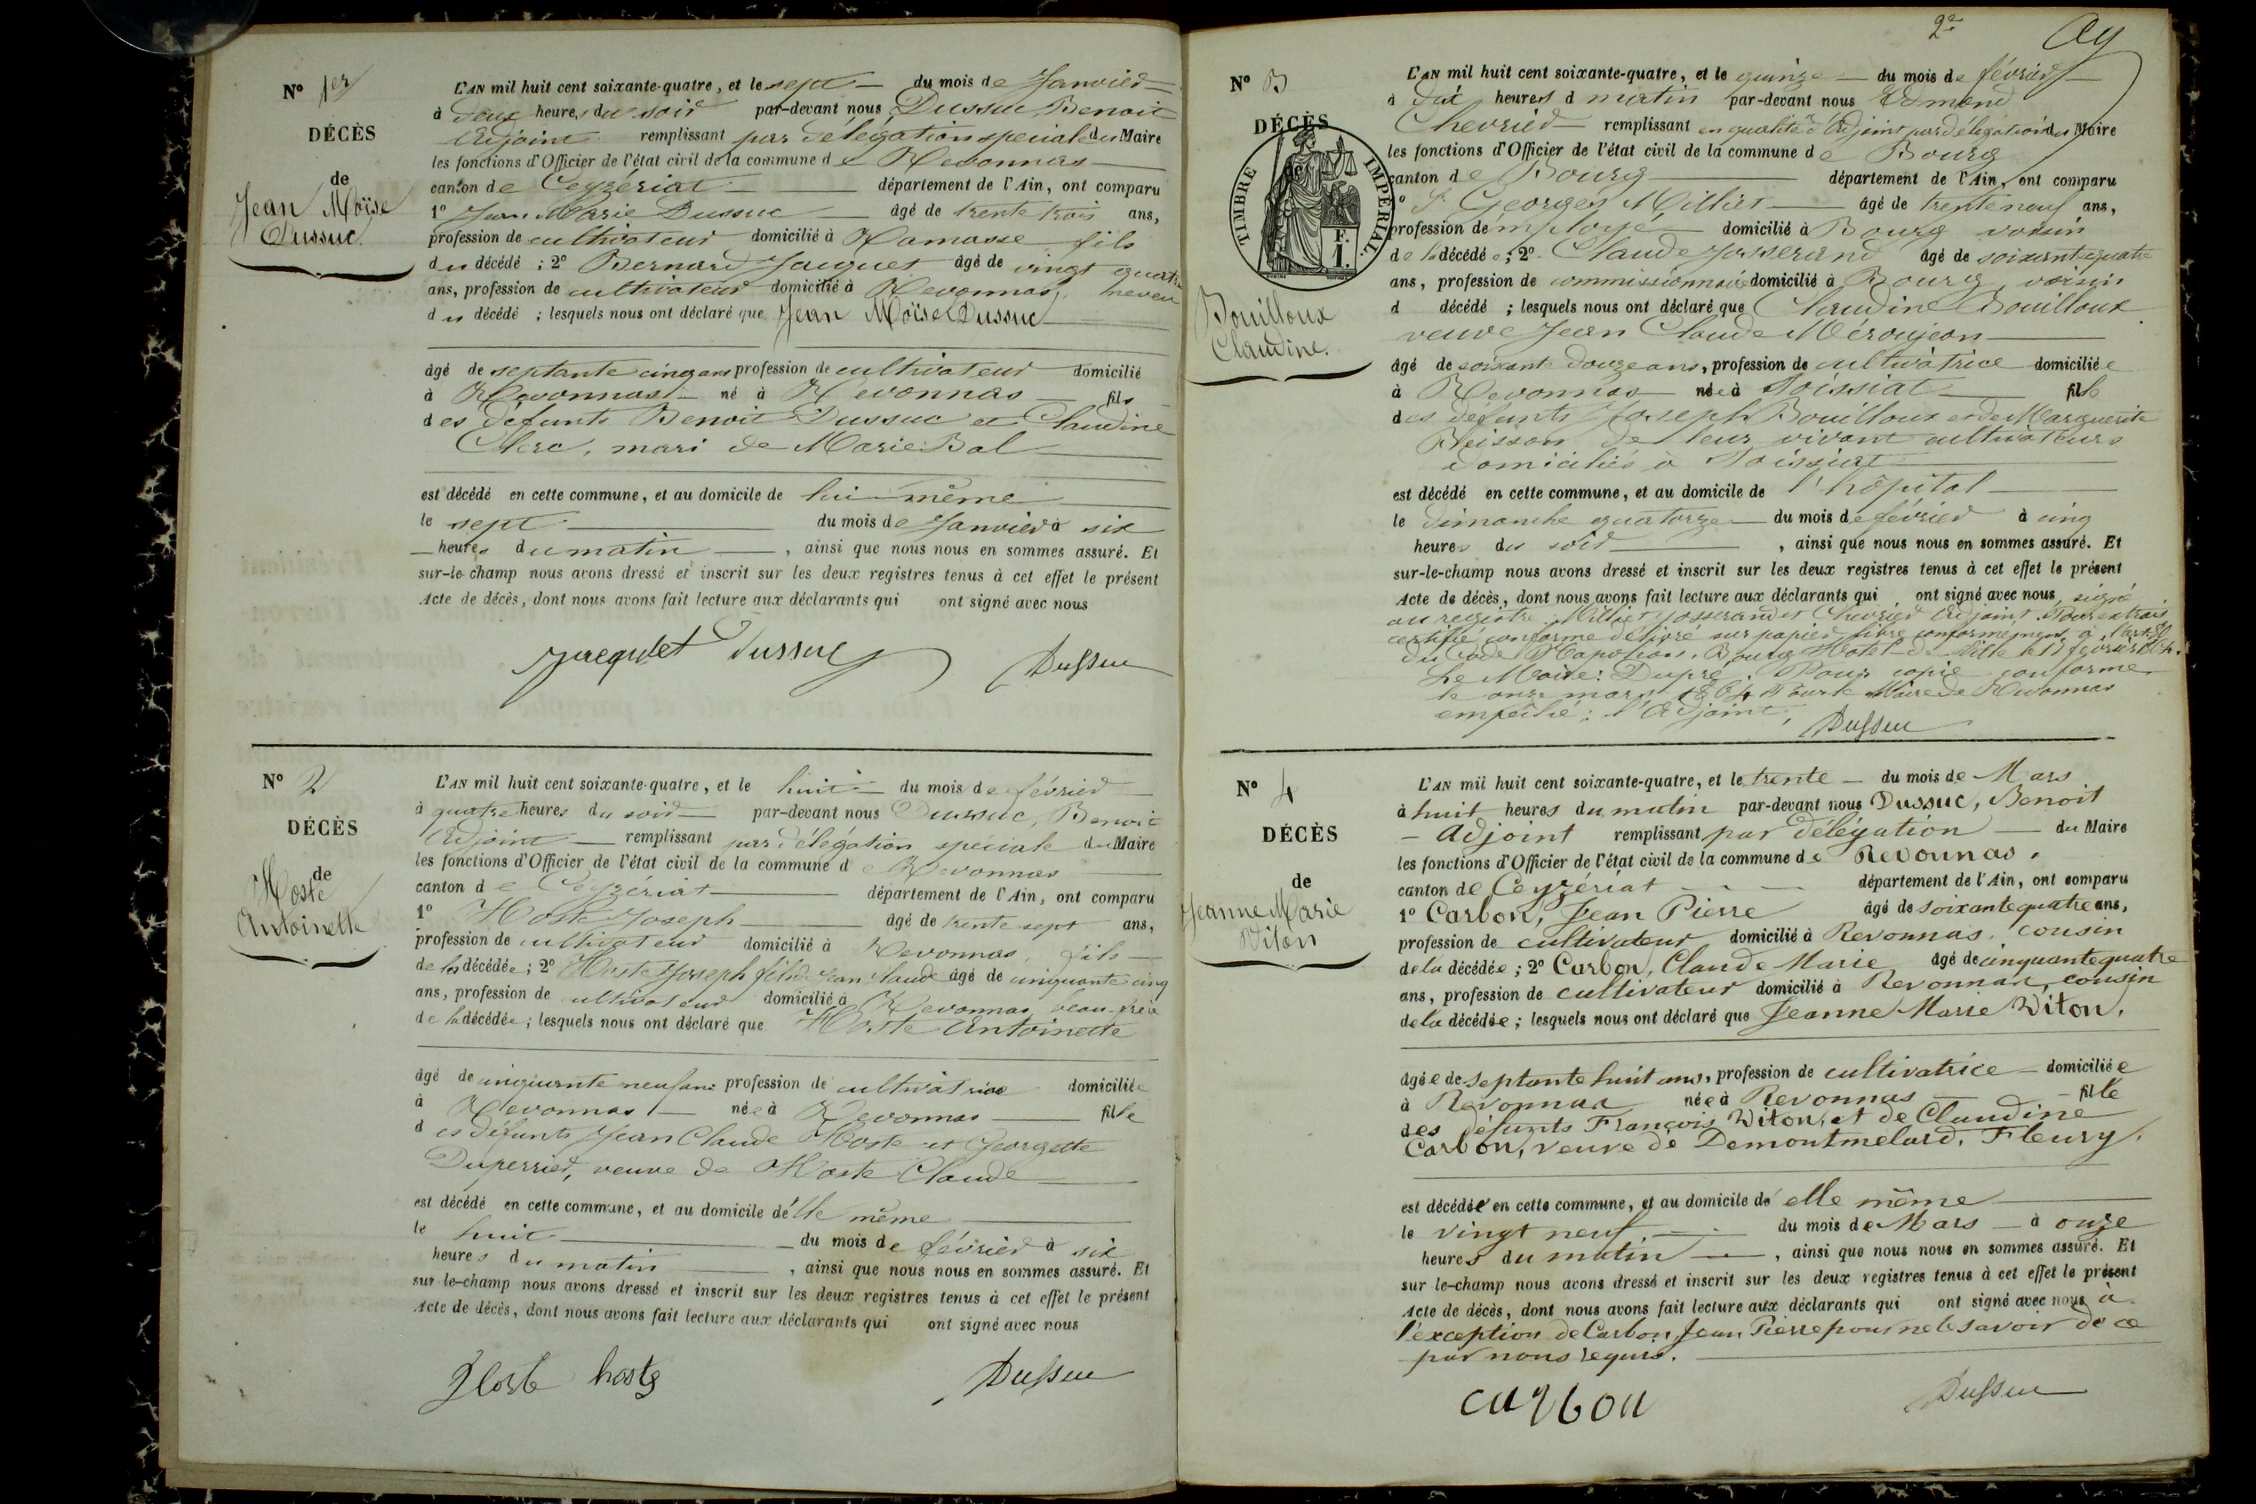 N° 1er
DÉCÈS
de
Jean Moïse
Dussuc
L'AN mil huit cent soixante-quatre, et le sept du mois de Janvier
à deux heures du soir par-devant nous Dussuc Benoit
Adjoint remplissant par délégation speciale du Maire
les fonctions d'Officier de l'état civil de la commune de Revonnas
canton de Ceyzériat département de l'Ain, ont comparu
1° Jean Marie Dussuc âgé de trente trois ans,
profession de cultivateur domicilié à Ramasse fils
du décédé ; 2° Bernard Jacquet âgé de vingt quatre
ans, profession de cultivateur domicilié à Revonnas, neveu
du décédé ; lesquels nous ont déclaré que Jean Moïse Dussuc
âgé de septante cinq ans profession de cultivateur domicilié
à Revonnas né à Revonnas fils
des défunts Benoit Dussuc et Claudine
Clerc, mari de Marie Bal
est décédé en cette commune, et au domicile de lui-même
le sept du mois de Janvier à six
heures du matin, ainsi que nous nous en sommes assuré. Et
sur-le-champ nous avons dressé et inscrit sur les deux registres tenus à cet effet le présent
Acte de décès, dont nous avons fait lecture aux déclarants qui ont signé avec nous
Jacquet Dussuc Dussuc
N° 2
DÉCÈS
de
Hoste
Antoinette
L'AN mil huit cent soixante-quatre, et le huit du mois de février
à quatre heures du soir par-devant nous Dussuc, Benoit
Adjoint remplissant par délégation spéciale du Maire
les fonctions d'Officier de l'état civil de la commune de Revonnas
canton de Ceyzériat département de l'Ain, ont comparu
1° Hoste Joseph âgé de trente sept ans,
profession de cultivateur domicilié à Revonnas, fils
de la décédée ; 2° Hoste Joseph fils de Jean Claude âgé de cinquante cinq
ans, profession de cultivateur domicilié à Revonnas, beau-frère
de la décédée ; lesquels nous ont déclaré que Hoste Antoinette
âgé de cinquante neuf ans profession de cultivatrice domiciliée
à Revonnas née à Revonnas fille
des défunts Jean Claude Hoste et Georgette
Duperrier, veuve de Hoste Claude
est décédé en cette commune, et au domicile d'elle même
le huit du mois de février à six
heures du matin, ainsi que nous nous en sommes assuré. Et
sur le-champ nous avons dressé et inscrit sur les deux registres tenus à cet effet le présent
Acte de décès, dont nous avons fait lecture aux déclarants qui ont signé avec nous
Hoste hoste Dussuc
2e
N° 3
DÉCÈS
de
TIMBRE IMPÉRIAL
F.
1.
Bouilloux
Claudine.
L'AN mil huit cent soixante-quatre, et le quinze du mois de février
à dix heures d matin par-devant nous Edmond
Chevrier remplissant en qualité d'Adjoint par délégation du Maire
les fonctions d'Officier de l'état civil de la commune de Bourg
canton de Bourg département de l'Ain, ont comparu
1° Sr Georges Milliet âgé de trente neuf ans,
profession d'employé domicilié à Bourg voisin
de la décédée ; 2° Claude Josserand âgé de soixante quatre
ans, profession de commissionnaire domicilié à Bourg, voisin
d décédé ; lesquels nous ont déclaré que Claudine Bouilloux
veuve Jean Claude Méroujeon
âgé de soixante douze ans, profession de cultivatrice domiciliée
à Revonnas née à Poissiat fille
des défunts Joseph Bouilloux et de Marguerite
Beisson de leur vivant cultivateurs
domiciliés à Poissiat
est décédé en cette commune, et au domicile de l'hôpital
le dimanche quatorze du mois de février à cinq
heures du soir, ainsi que nous nous en sommes assuré. Et
sur-le-champ nous avons dressé et inscrit sur les deux registres tenus à cet effet le présent
Acte de décès, dont nous avons fait lecture aux déclarants qui ont signé avec nous, signé
au registre : Milliet Josserand et Chevrier Adjoint. Pour extrait
certifié conforme délivré sur papier libre conformément à l'art. 80
du Code Napoléon. Bourg Hotel de Ville le 17 février 1864.
Le Maire : Dupré. Pour copie conforme
le onze mars 1864 Pour le Maire de Revonnas
empêché : l'Adjoint,
Dussuc
N° 4
DÉCÈS
de
Jeanne Marie
Viton
L'AN mil huit cent soixante-quatre, et le trente du mois de Mars
à huit heures du matin par-devant nous Dussuc, Benoit
Adjoint remplissant par délégation du Maire
les fonctions d'Officier de l'état civil de la commune de Revonnas,
canton de Ceyzériat département de l'Ain, ont comparu
1° Carbon, Jean Pierre âgé de soixante quatre ans,
profession de cultivateur domicilié à Revonnas, cousin
de la décédée ; 2° Carbon, Claude Marie âgé de cinquante quatre
ans, profession de cultivateur domicilié à Revonnas, cousin
de la décédée ; lesquels nous ont déclaré que Jeanne Marie Viton,
âgée de septante huit ans, profession de cultivatrice domiciliée
à Revonnas née à Revonnas fille
des défunts François Viton, et de Claudine
Carbon, veuve de Demontmelard, Fleury.
est décédée en cette commune, et au domicile de elle même
le vingt neuf du mois de Mars à onze
heures du matin, ainsi que nous nous en sommes assuré. Et
sur le-champ nous avons dressé et inscrit sur les deux registres tenus à cet effet le présent
Acte de décès, dont nous avons fait lecture aux déclarants qui ont signé avec nous à
l'exception de Carbon Jean Pierre pour ne le savoir de ce
par nous requis.
carbon Dussuc